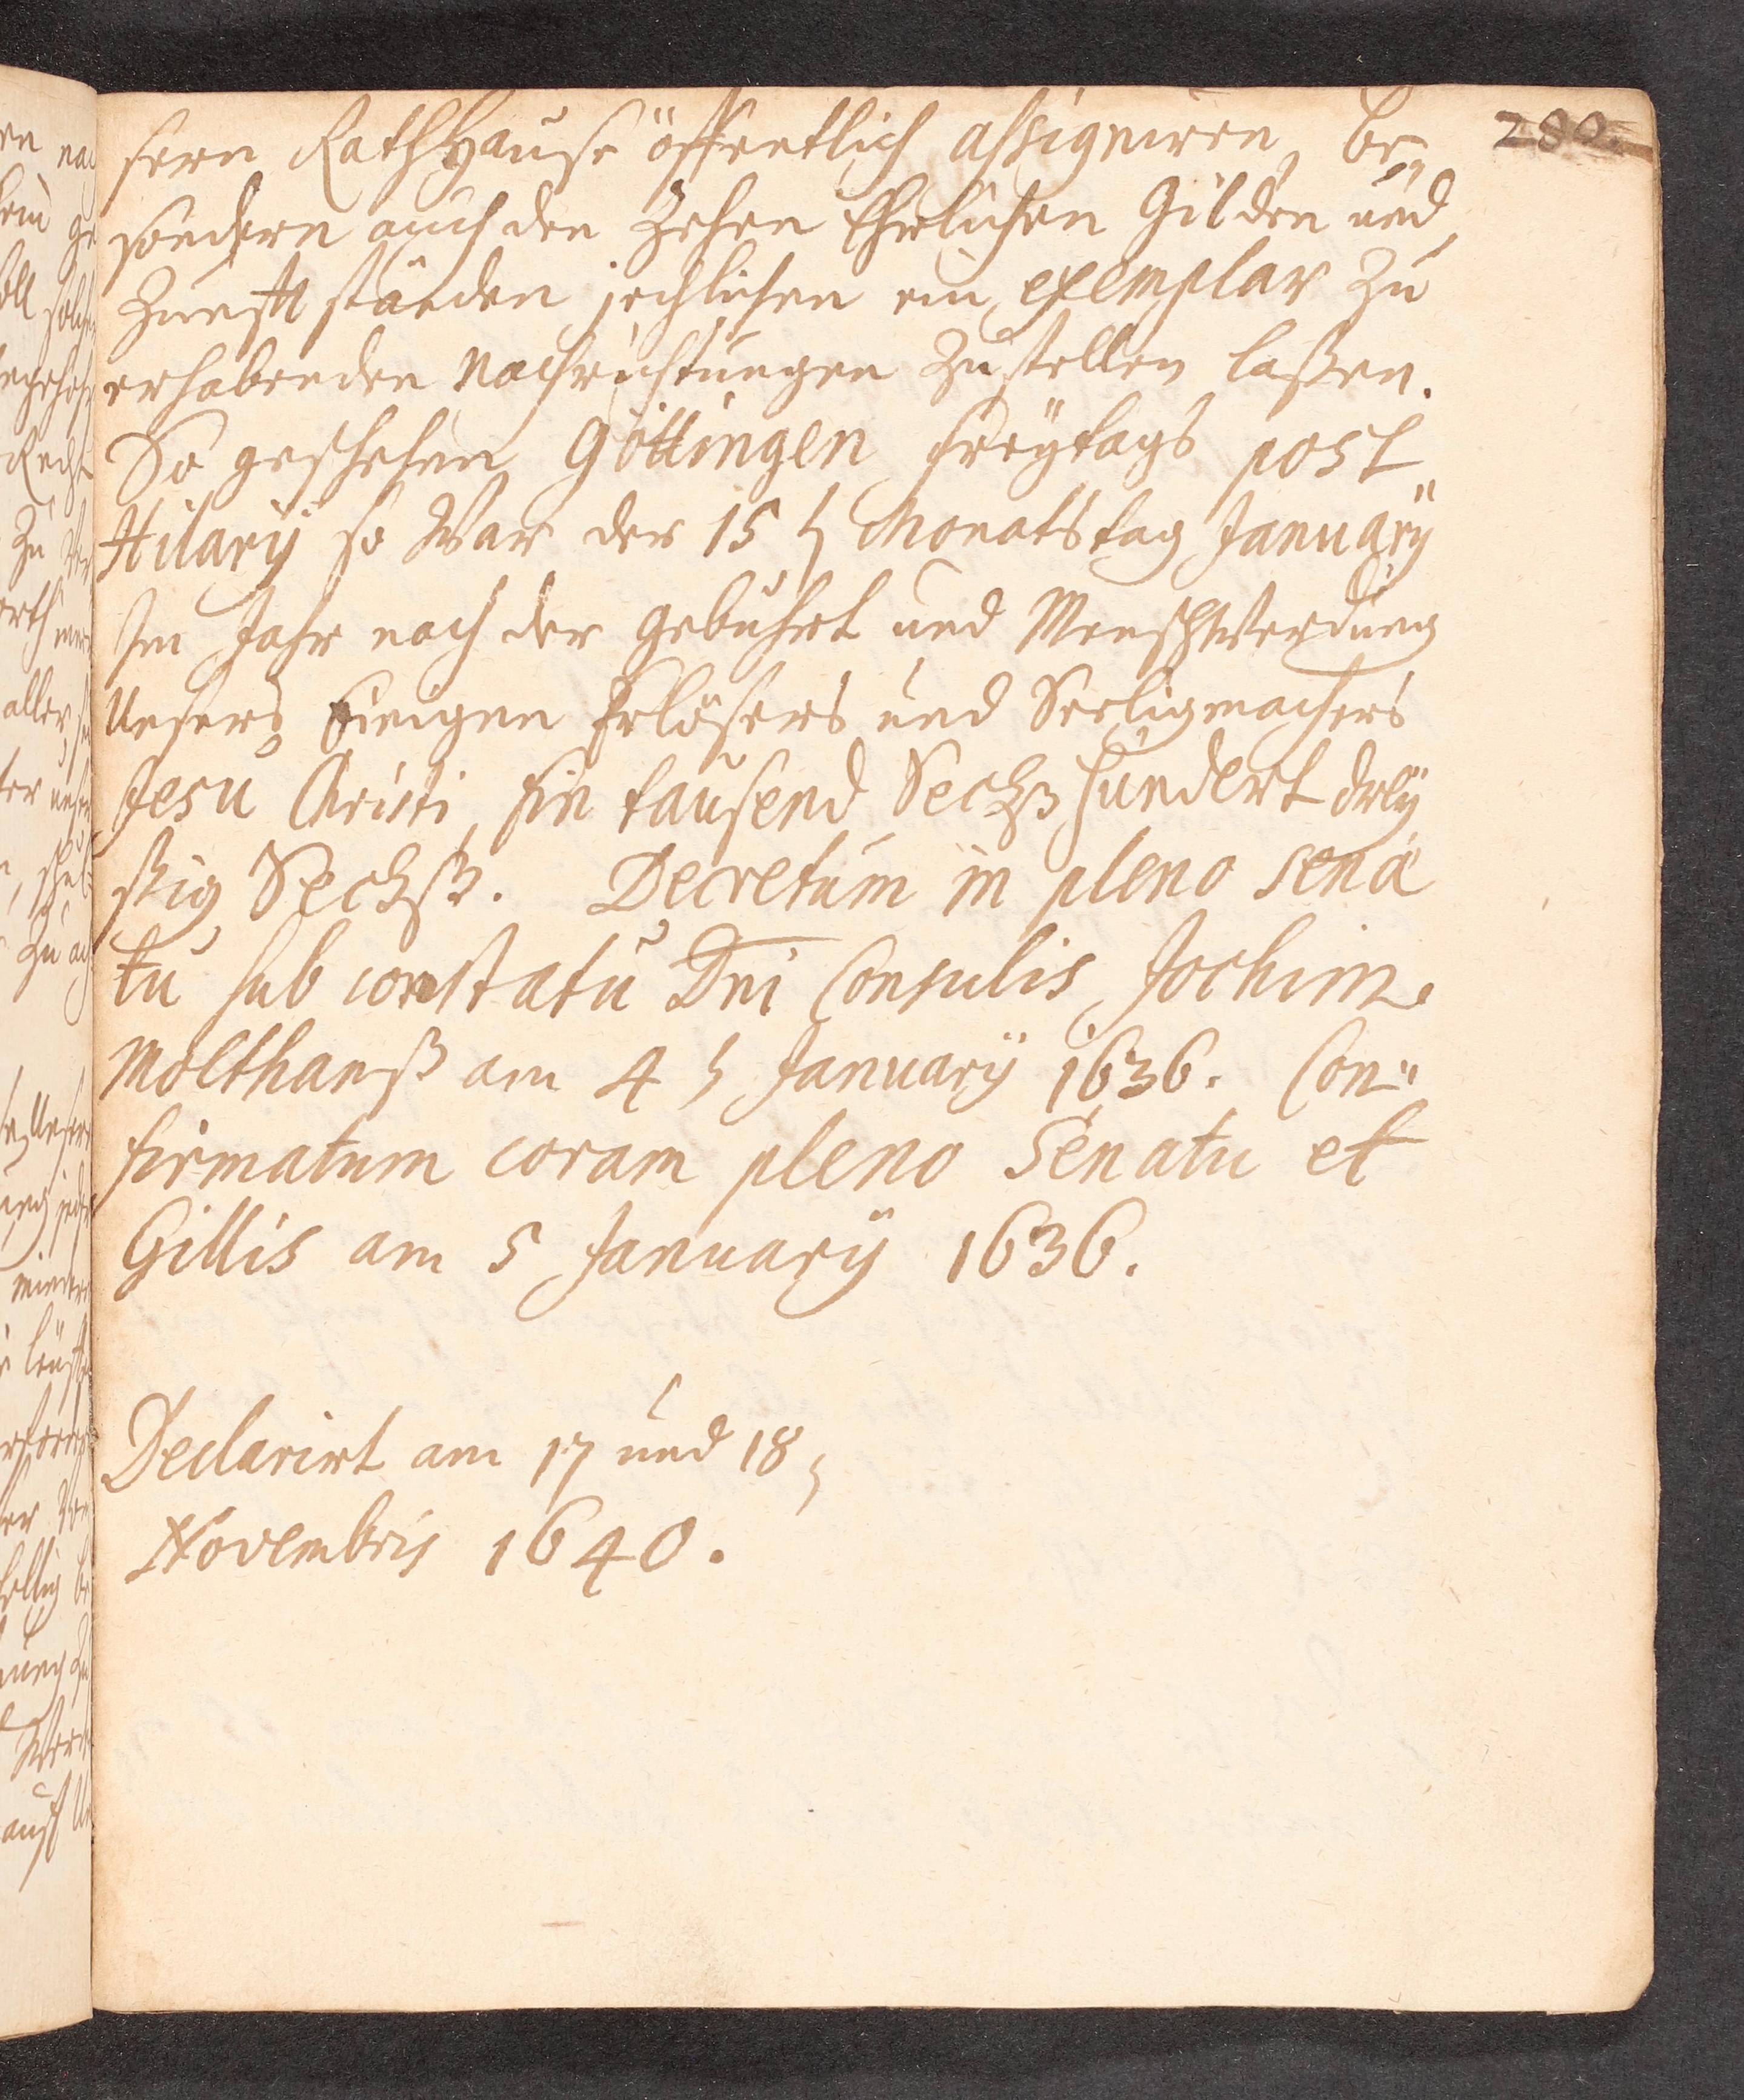 280.
sern RathHause öffentlich assigniren, be„
sondern auch den Zehen Ehrlichen Gilden und
Zunfft ständen jechlichen ein exemplar zu
erhabenden Nachrichtungen Zustellen laßen.
So geschehen Göttingen freÿtags post
Hilarÿ so War der 15 t Monatstag Januarÿ
Im Jahr nach der gebuhrt und MenschWerdung
Unsers Einigen Erlösers und Seeligmachers
Jesu Christi, Ein tausend Sechß hundert dreÿ
ßig Sechß. Decretum in pleno Sena
tu sub constatu Dni Consulis Jochim
Molthanß am 4 t Januarÿ 1636. Con„
firmatum coram pleno Senatu et
Gillis am 5 Januarÿ 1636.
Declarirt am 17 und 18
Novembris 1640.